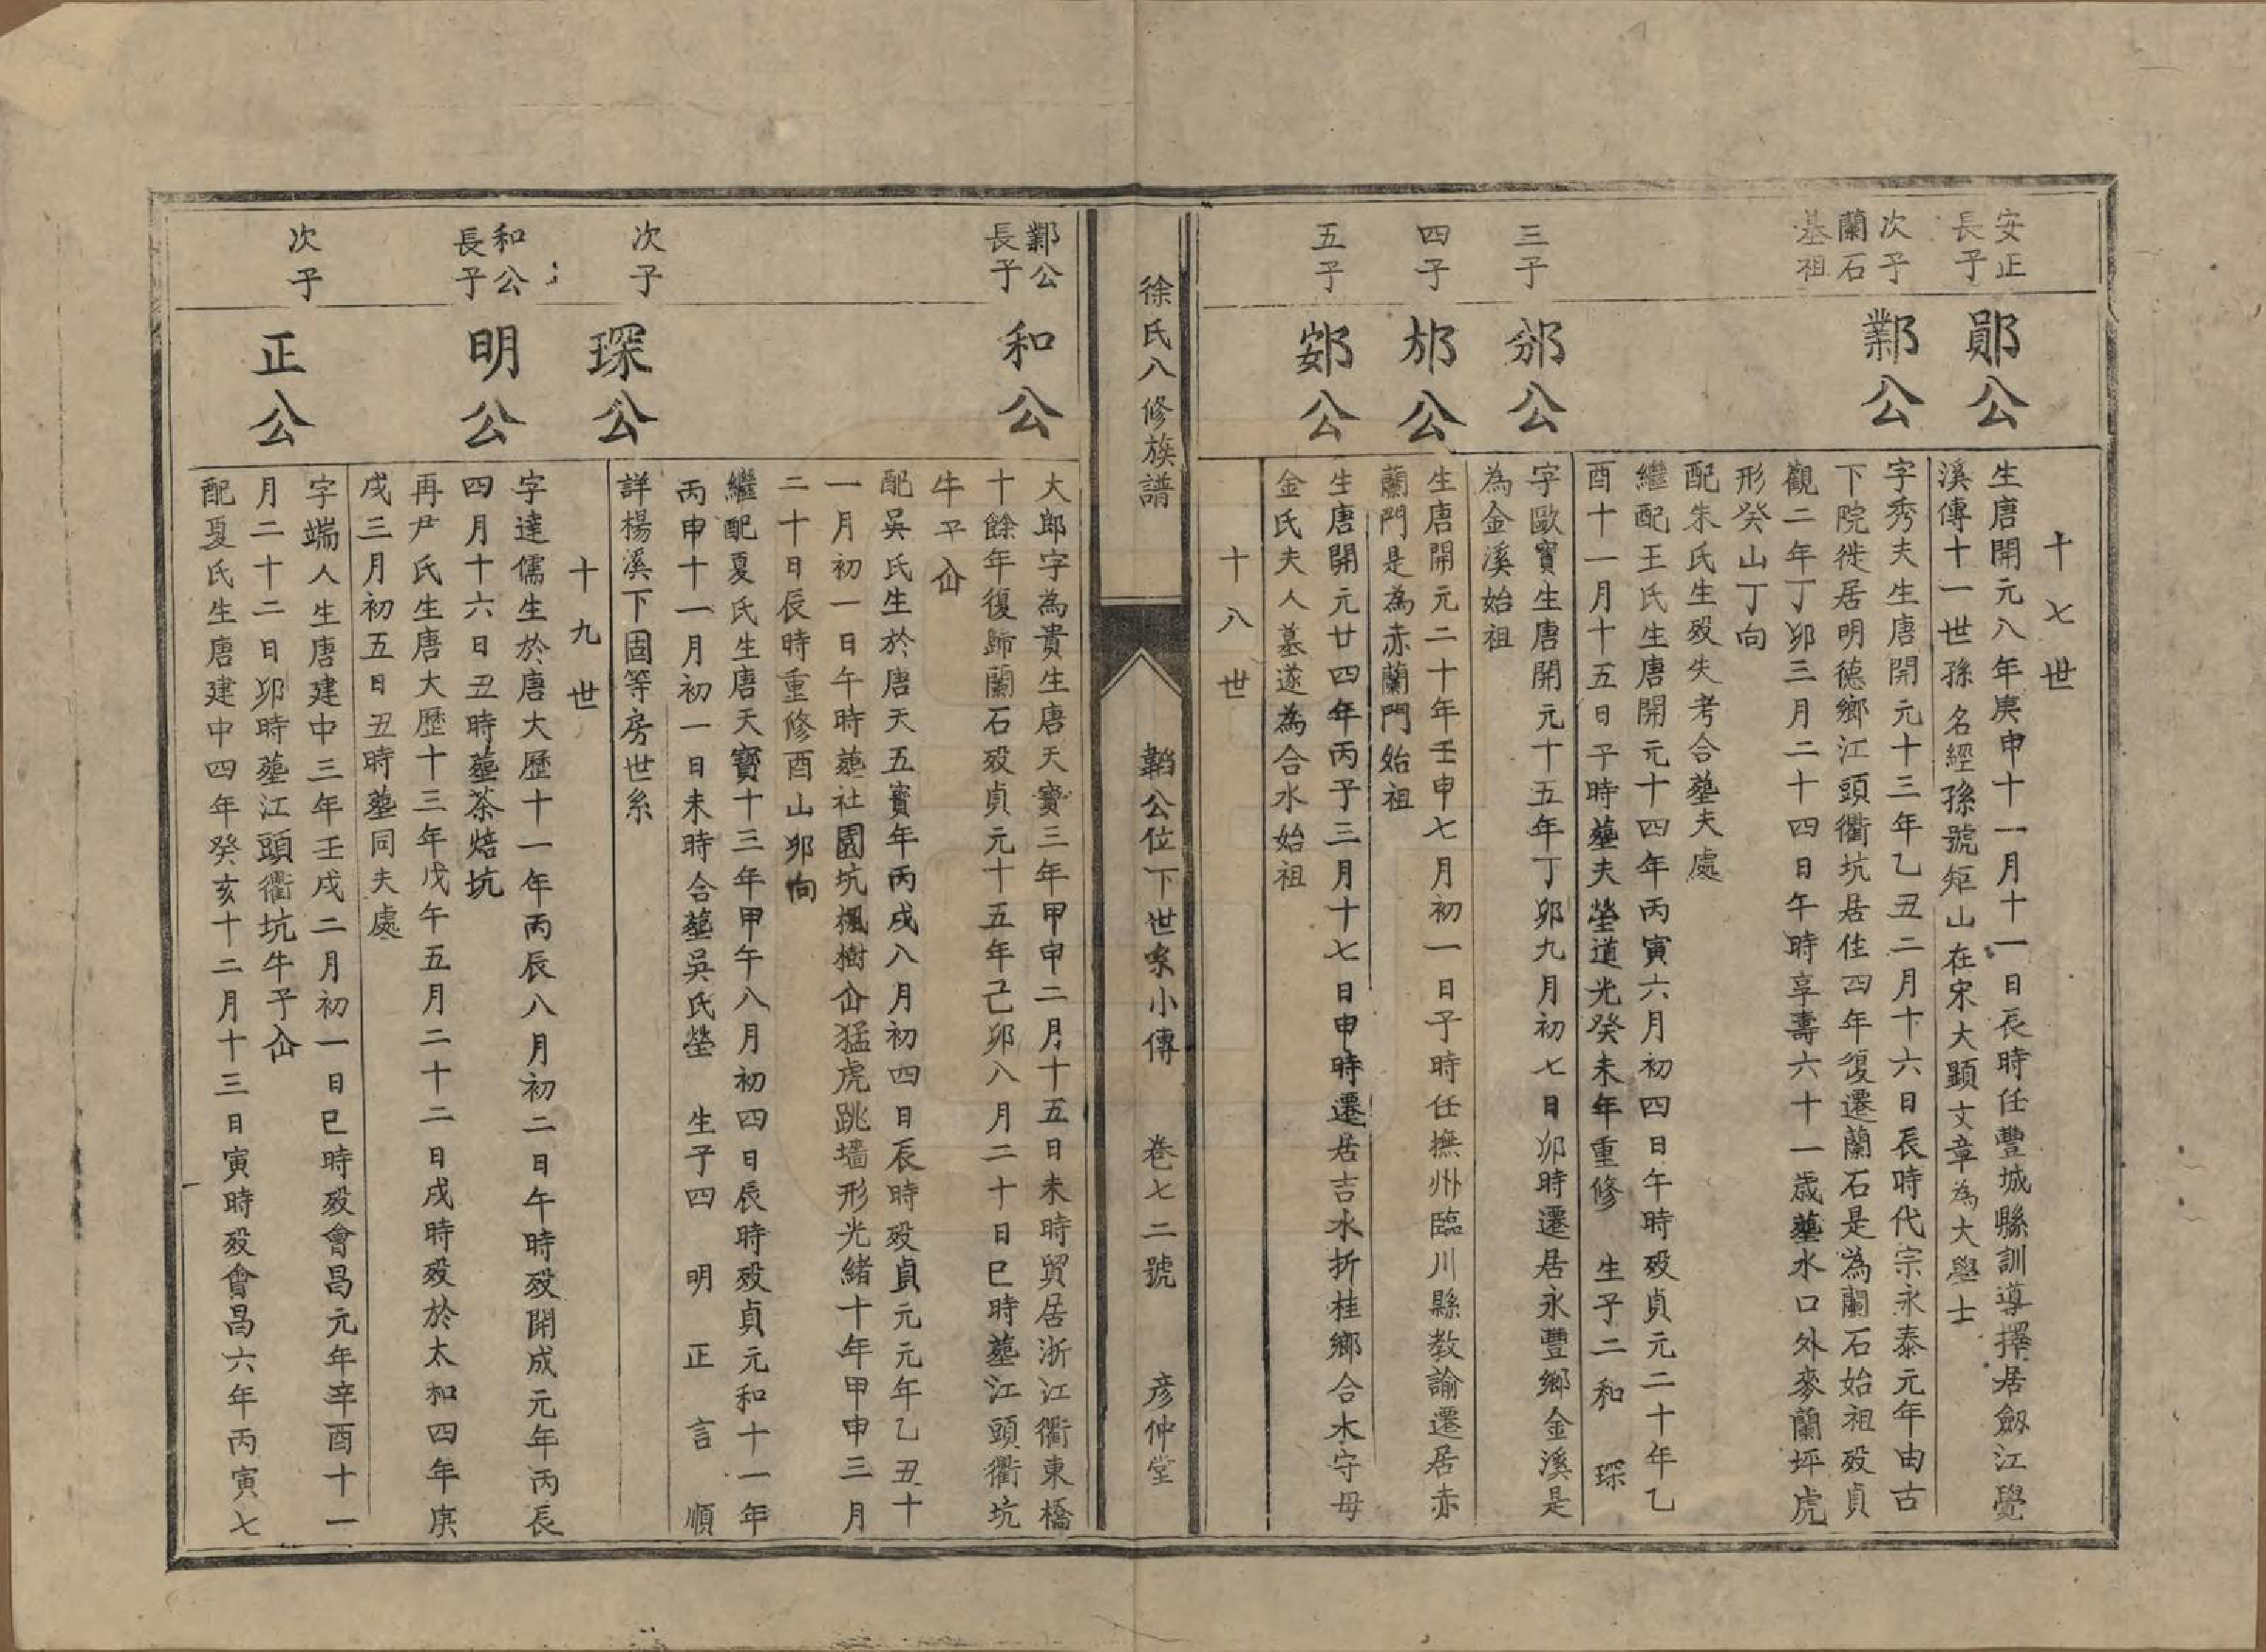 十七世
安正
長子
鄖公
生唐開元八年庚申十一月十一日辰時任豐城縣訓導擇居劔江覺
溪傳十一世孫名經孫號矩山在宋大顯文章為大學士
次子
蘭石
基祖
鄴公
字秀夫生唐開元十三年乙丑二月十六日辰時代宗永泰元年由古
下院徙居明德鄉江頭衢坑居住四年復遷蘭石是為蘭石始祖殁貞
觀二年丁卯三月二十四日午時享壽六十一歲塟水口外麥蘭坪虎
形癸山丁向
配朱氏生殁失考合塟夫處
繼配王氏生唐開元十四年丙寅六月初四日午時殁貞元二十年乙
酉十一月十五日子時塟夫塋道光癸未年重修 生子二 和 琛
三子
邠公
字歐寳生唐開元十五年丁卯九月初七日卯時遷居永豐鄉金溪是
為金溪始祖
四子
邡公
生唐開元二十年壬申七月初一日子時任撫州臨川縣教諭遷居赤
蘭門是為赤蘭門始祖
五子
公
生唐開元廿四年丙子三月十七日申時遷居吉水折桂鄉合木守母
金氏夫人墓遂為合水始祖
十八世
徐氏八修族譜
韜公位下世系小傳 卷七二號 彦仲堂
鄴公
長子
和公
大郎字為貴生唐天寳三年甲申二月十五日未時貿居浙江衢東橋
十餘年復歸蘭石殁貞元十五年己卯八月二十日巳時塟江頭衢坑
牛子仚
配吳氏生於唐天五寳年丙戌八月初四日辰時殁貞元元年乙丑十
一月初一日午時塟社園坑楓樹仚猛虎跳墻形光緒十年甲申三月
二十日辰時重修酉山卯向
繼配夏氏生唐天寳十三年甲午八月初四日辰時殁貞元和十一年
丙申十一月初一日未時合塟吳氏塋 生子四 明 正 言 順
次子
琛公
詳楊溪下固等房世系
十九世
和公
長子
明公
字達儒生於唐大歷十一年丙辰八月初二日午時殁開成元年丙辰
四月十六日丑時塟茶焙坑
再尹氏生唐大歷十三年戊午五月二十二日戌時殁於太和四年庚
戌三月初五日丑時塟同夫處
次子
正公
字端人生唐建中三年壬戌二月初一日巳時殁會昌元年辛酉十一
月二十二日卯時塟江頭衢坑牛子仚
配夏氏生唐建中四年癸亥十二月十三日寅時殁會昌六年丙寅七